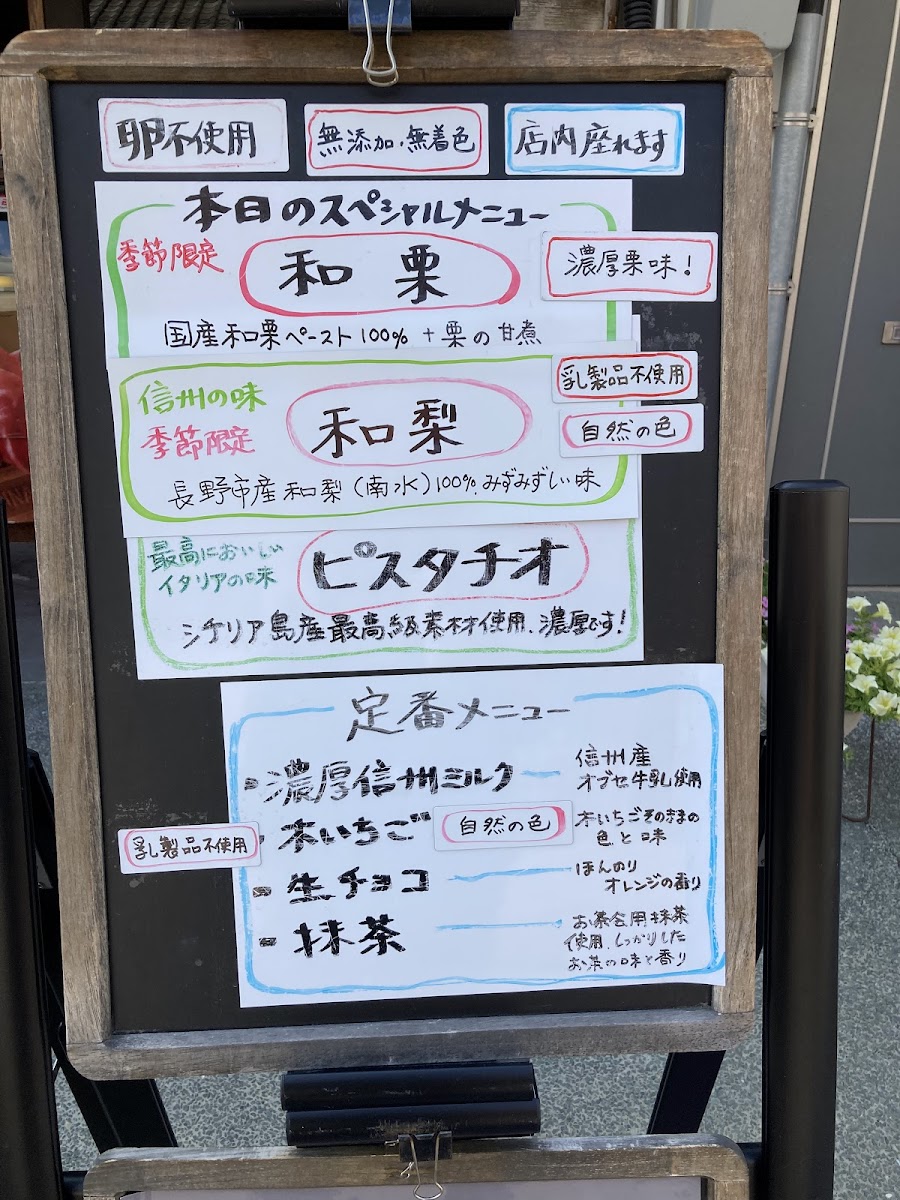 卵不使用
無添加・無着色
店内座れます
本日のスペシャルメニュー
季節限定
和栗
濃厚栗味!
国産和栗ペースト100% + 栗の甘煮
乳製品不使用
信州の味
季節限定
和梨
自然の色
長野市産和梨(南水)100% みずみずしい味
最高においしい
イタリアの味
ピスタチオ
シチリア島産最高級素材使用、濃厚です!
定番メニュー
・濃厚信州ミルク ー 信州産
オブセ牛乳使用
乳製品不使用
・木いちご
自然の色
木いちごそのままの
色と味
・生チョコ ー ほんのり
オレンジの香り
・抹茶 ー お茶会用抹茶
使用、しっかりした
お茶の味と香り